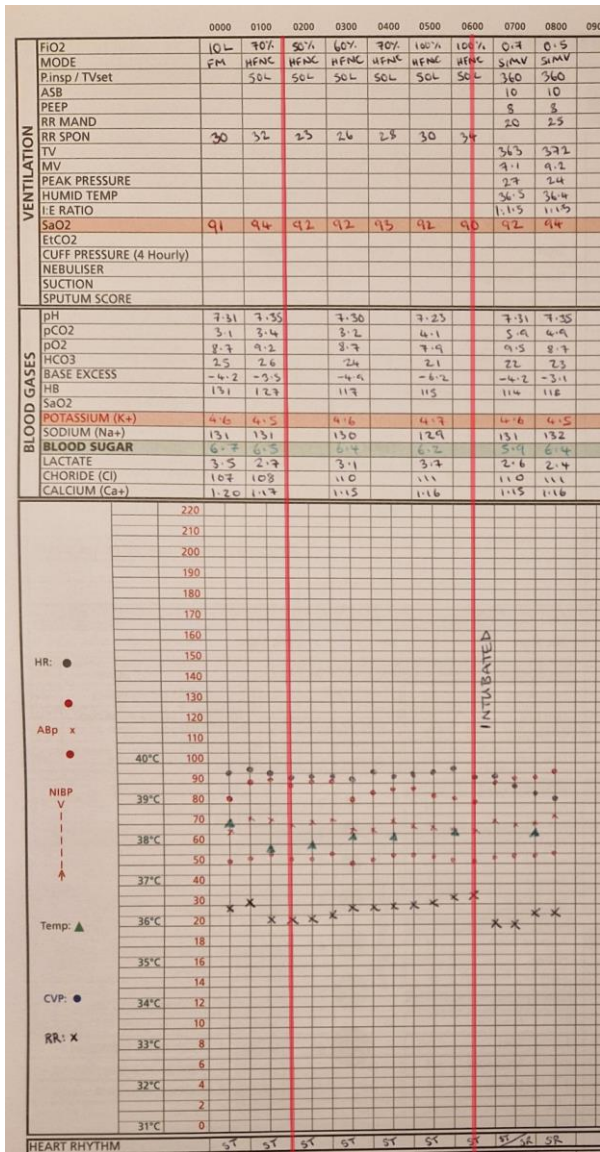 0000 0100 0200 0300 0400 0500 0600 0700 0800 090
VENTILATION
FiO2 10L 70% 50% 60% 70% 100% 100% 0.7 0.5
MODE FM HFNC HFNC HFNC HFNC HFNC HFNC SIMV SIMV
P.insp / TVset 50L 50L 50L 50L 50L 50L 360 360
ASB 10 10
PEEP 8 8
RR MAND 20 25
RR SPON 30 32 23 26 28 30 34
TV 363 372
MV 7.1 9.2
PEAK PRESSURE 27 24
HUMID TEMP 36.5 36.4
I:E RATIO 1:1.5 1:1.5
SaO2 91 94 92 92 93 92 90 92 94
EtCO2
CUFF PRESSURE (4 Hourly)
NEBULISER
SUCTION
SPUTUM SCORE
BLOOD GASES
pH 7.31 7.35 7.30 7.23 7.31 7.35
pCO2 3.1 3.4 3.2 4.1 5.9 4.9
pO2 8.7 9.2 8.7 7.9 9.5 8.7
HCO3 25 26 24 21 22 23
BASE EXCESS -4.2 -3.5 -4.9 -6.2 -4.2 -3.1
HB 131 127 117 115 114
SaO2
POTASSIUM (K+) 4.6 4.5 4.6 4.7 4.6 4.5
SODIUM (Na+) 131 131 130 129 131 132
BLOOD SUGAR 6.7 6.5 6.4 6.2 5.9 6.4
LACTATE 3.5 2.7 3.1 3.7 2.6 2.4
CHORIDE (Cl) 107 108 110 111 110 111
CALCIUM (Ca+) 1.20 1.17 1.15 1.16 1.15 1.16
220
210
200
190
180
170
160
HR: 150
140
130
120
ABp x
110
40°C 100
90
NIBP
39°C 80
70
38°C 60
50
37°C 40
30
Temp: 36°C 20
18
35°C 16
14
CVP: 34°C 12
10
RR: x
33°C 8
6
32°C 4
2
31°C 0
INTUBATED
HEART RHYTHM ST ST ST ST ST ST ST ST/SR SR